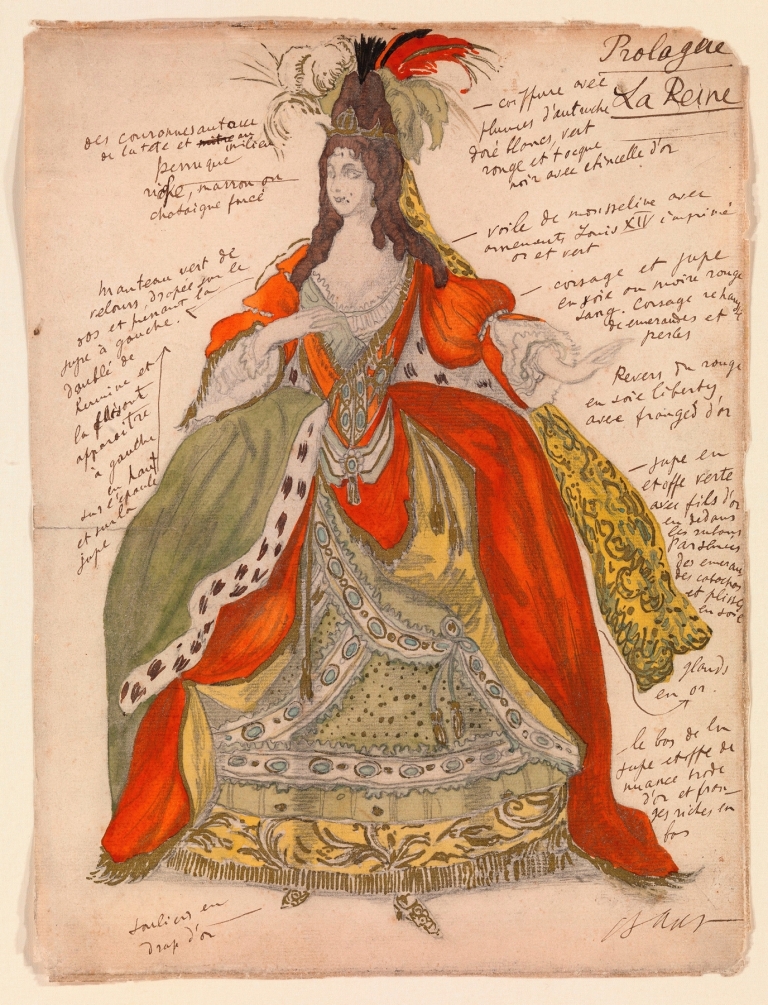 Prologue
La Reine
— coiffure avec
plumes d'autruche
doré blancs, vert
rouge et toque
noir avec etincelle d'or
des couronnes autour
de la tete et au milieu
perruque
riche, marron ou
chataigne foncé
— voile de mousseline avec
ornements Louis XIV imprimé
or et vert
manteau vert de
velours drapé sur le
dos et prenant la
jupe à gauche.
doublé de
hermine et
la faisant
apparaitre
à gauche
en haut
sur l'epaule
et sur la
jupe
— corsage et jupe
en soie ou moire rouge
sang. Corsage
de emeraudes et
perles
Revers du rouge
en soie liberty
avec franges d'or
— jupe en
etoffe verte
avec fils d'or
en dedans
les rubans
des
des cabochons
et plissé
en soie
glands
en or.
le bas de la
jupe etoffe de
nuance
d'or et fran-
ges riches en
bas
Souliers en
drap d'or
Bakst